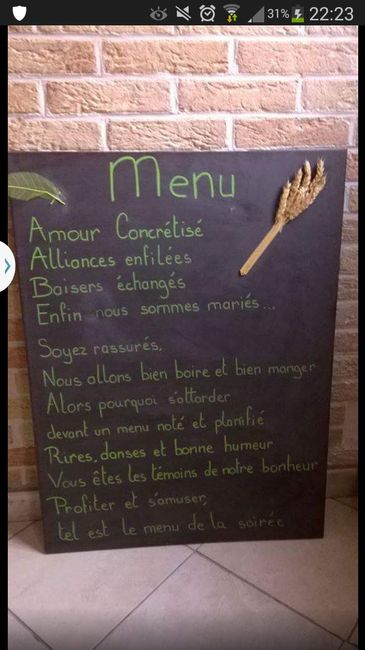 31% 22:23
Menu
Amour Concrétisé
Alliances enfilées
Baisers échangés
Enfin nous sommes mariés...
Soyez rassurés,
Nous allons bien boire et bien manger
Alors pourquoi s'attarder
devant un menu noté et planifié
Rires, danses et bonne humeur
Vous êtes les témoins de notre bonheur
Profiter et s'amuser,
tel est le menu de la soirée